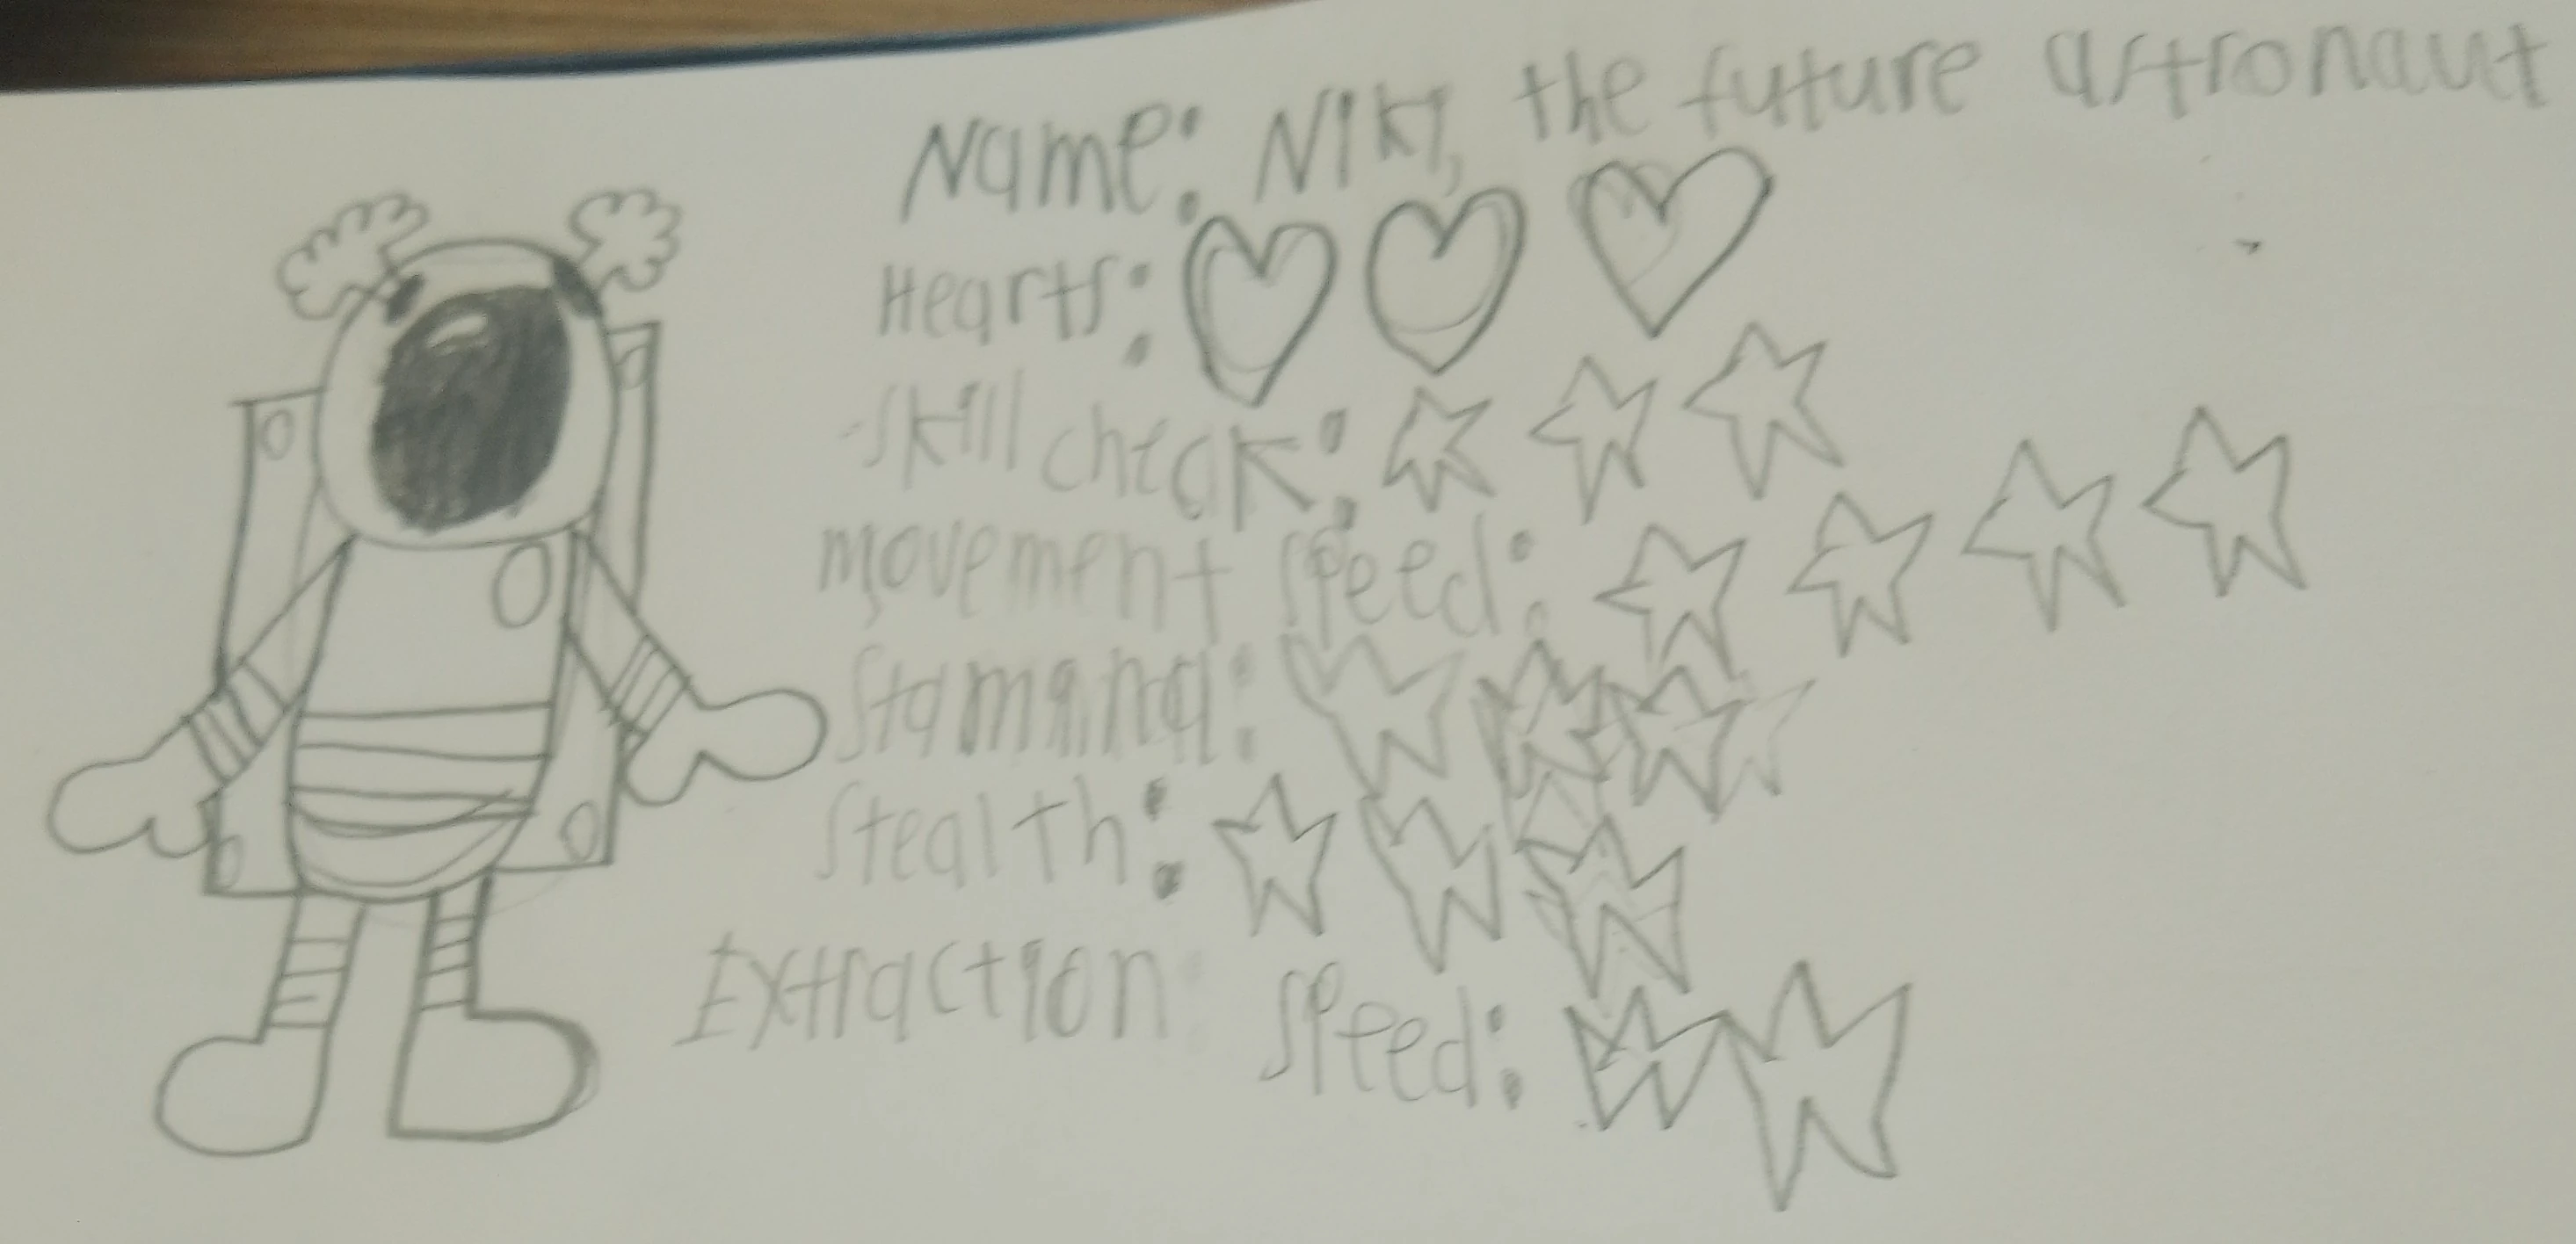 Name: NIKI, the future astronaut
Hearts:
skill check:
movement speed:
Stamina:
Stealth:
Extraction speed: